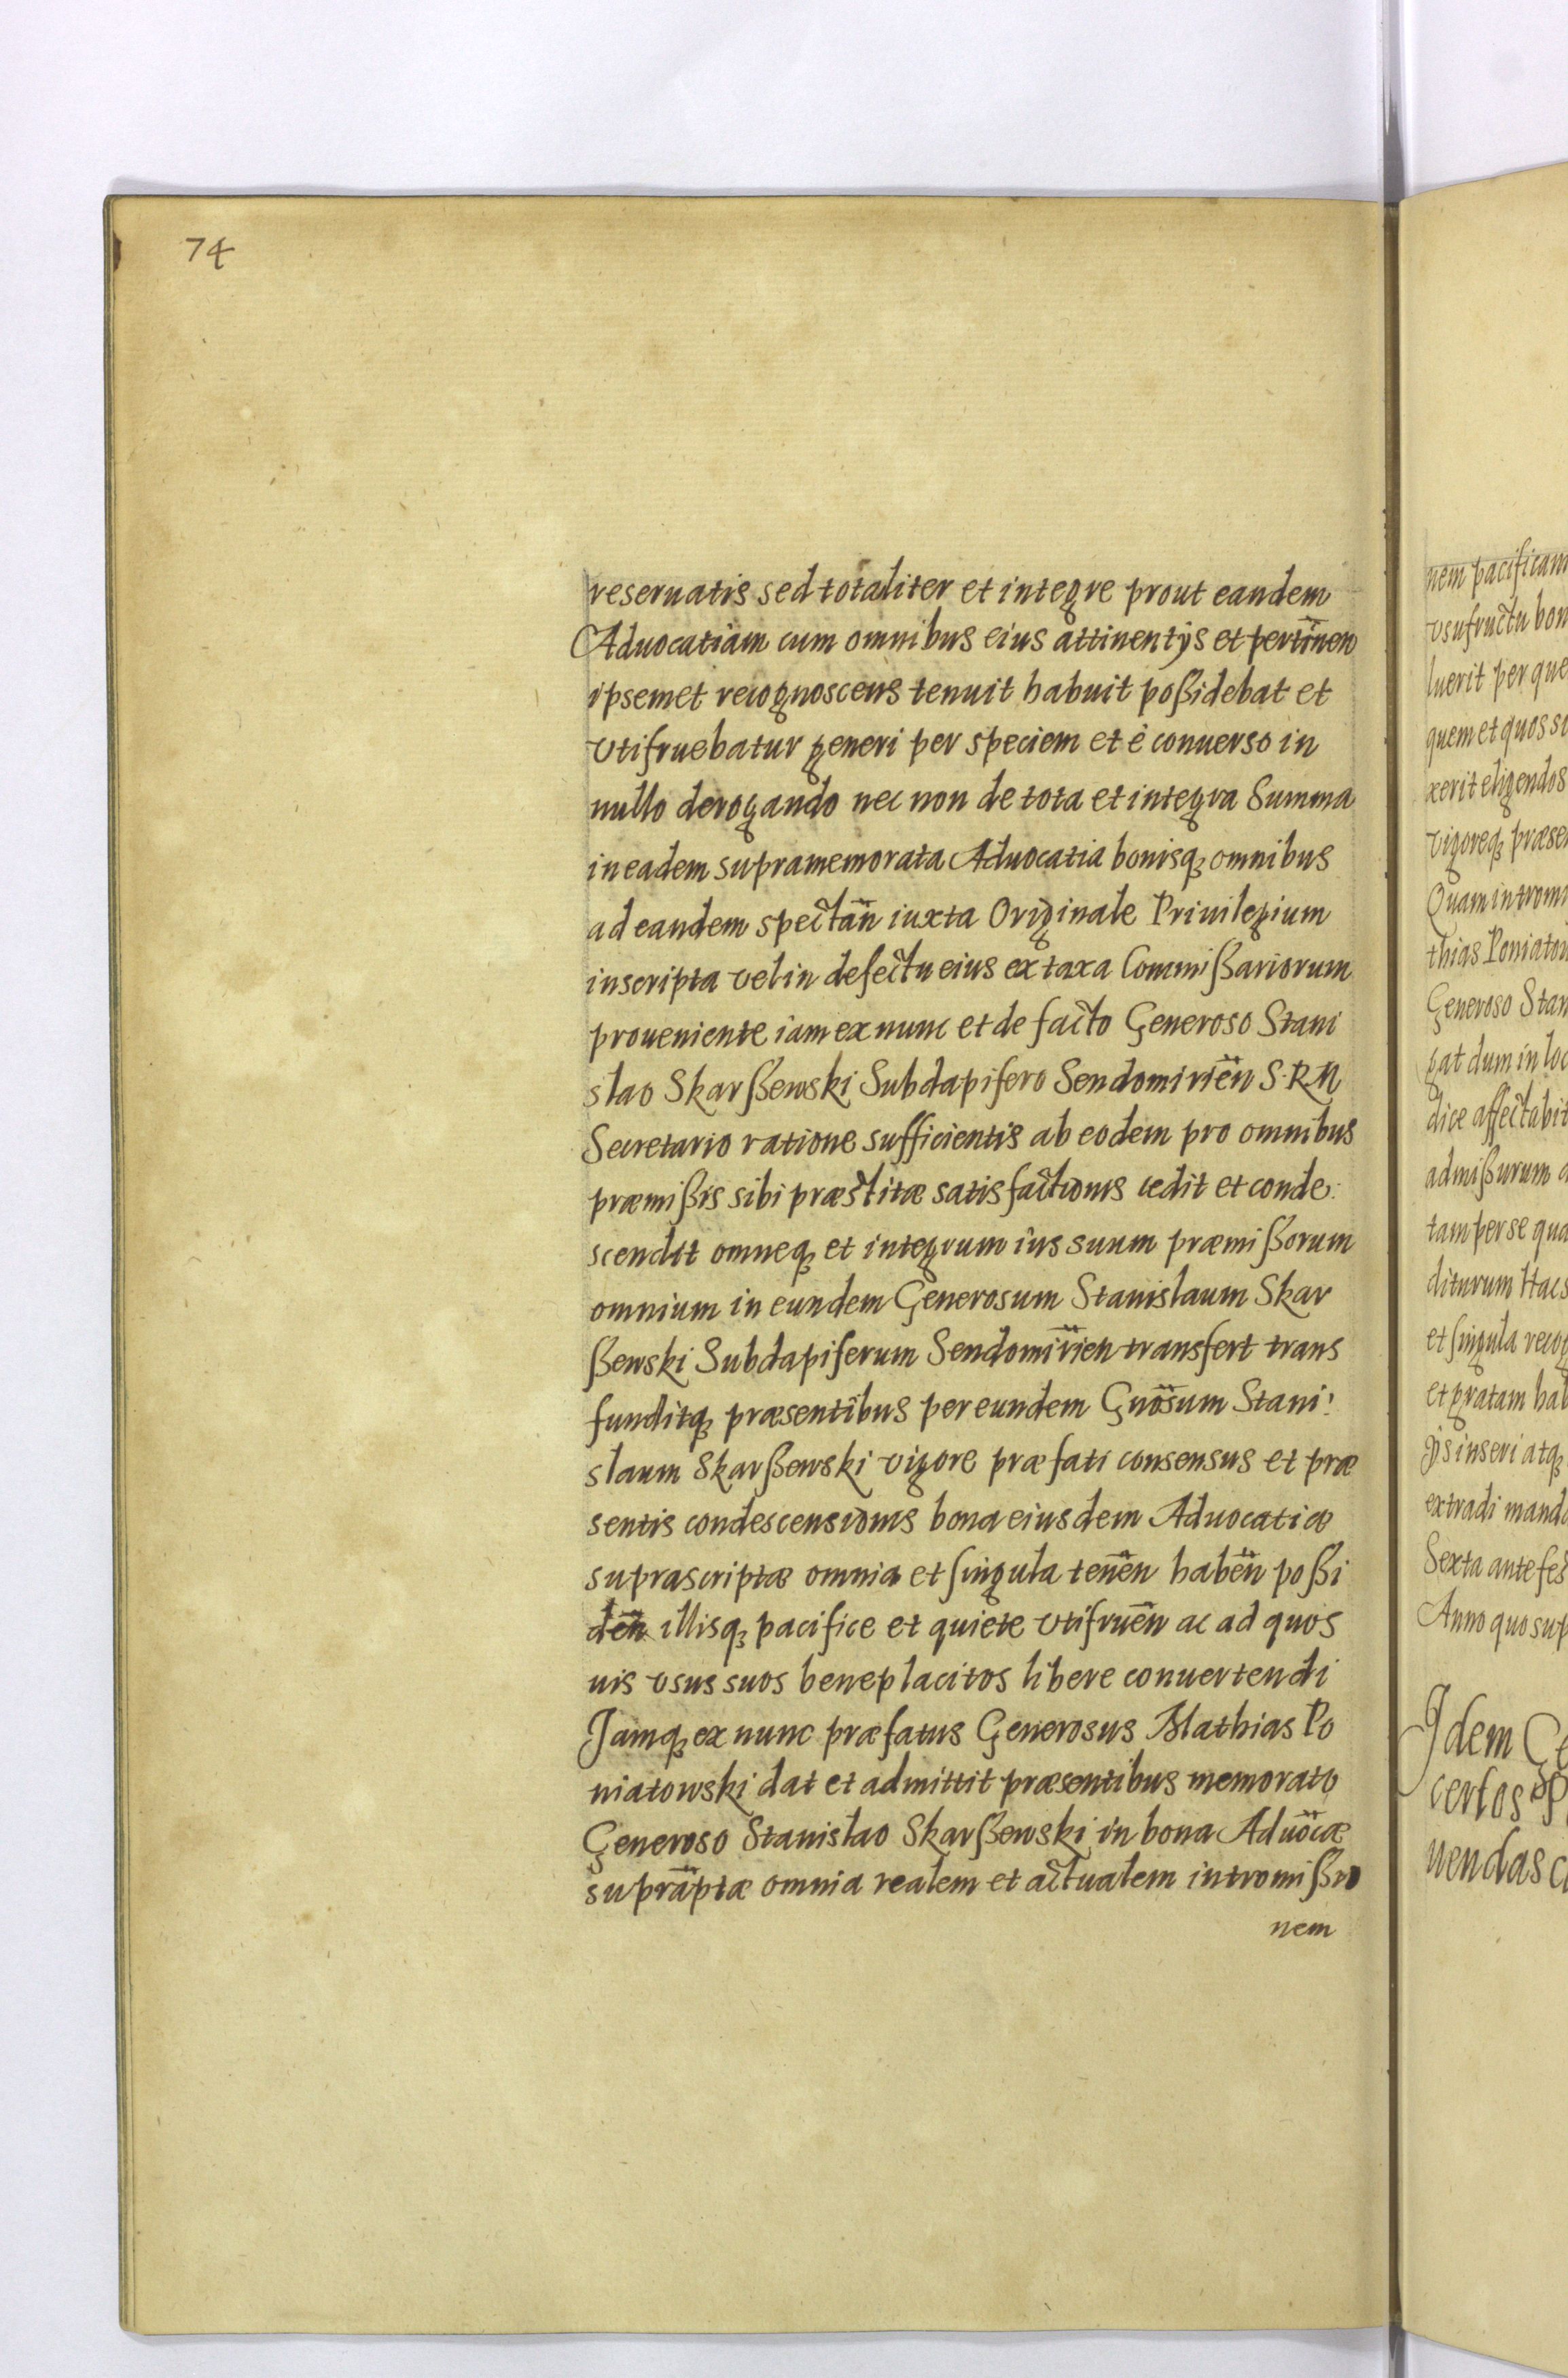 74
reseruatis sed totaliter et integre prout eandem
Aduocatiam cum omnibus eius attinentÿs et pertinen̄
ipsemet recognoscens tenuit habuit poßidebat et
vtifruebatur generi per speciem et è conuerso in
nullo derogando nec non de tota et integra Summa
in eadem supramemorata Aduocatia bonisq̨ omnibus
ad eandem spectan̄ iuxta Originale Priuilegium
inscripta vel in defectu eius ex taxa Commißariorum
proueniente iam ex nunc et de facto Generoso Stani
slao Skarßewski Subdapifero Sendomirien̄ S. R. M
Secretario ratione sufficientis ab eodem pro omnibus
præmißis sibi præstitæ satisfactionis cedit et conde:
scendit omneq̨ et integrum ius suum præmißorum
omnium in eundem Generosum Stanislaum Skar
ßewski Subdapiferum Sendomirien̄ transfert trans
funditq̨ præsentibus per eundem Gnōsum Stani:
slaum Skarßewski vigore præfati consensus et præ
sentis condescensionis bona eiusdem Aduocatiæ
suprascriptæ omnia et singula tenen̄ haben̄ poßi
den̄ illisq̨ pacifice et quiete vtifruen̄ ac ad quos
uis vsus suos beneplacitos libere conuertendi
Jamq̨ ex nunc præfatus Generosus Mathias Po
niatowski dat et admittit præsentibus memorato
Generoso Stanislao Skarßewski in bona Aduōcæ
suprāptæ omnia realem et actualem intromißio
nem
nem pacificam
vsufructu bon
luerit per que
quem et quos so
xerit eligendos
vigoreq̨ præsen
Quam intromi
thias Poniatow
Generoso Stan
gat dum in loc
dice affectabit
admißurum a
tam per se qua
diturum Hac s
et singula recog
et gratam hab
ÿs inseri atq̨
extradi manda
Sexta ante fes
Anno quo sup
Jdem Ge
certos P
uendas c